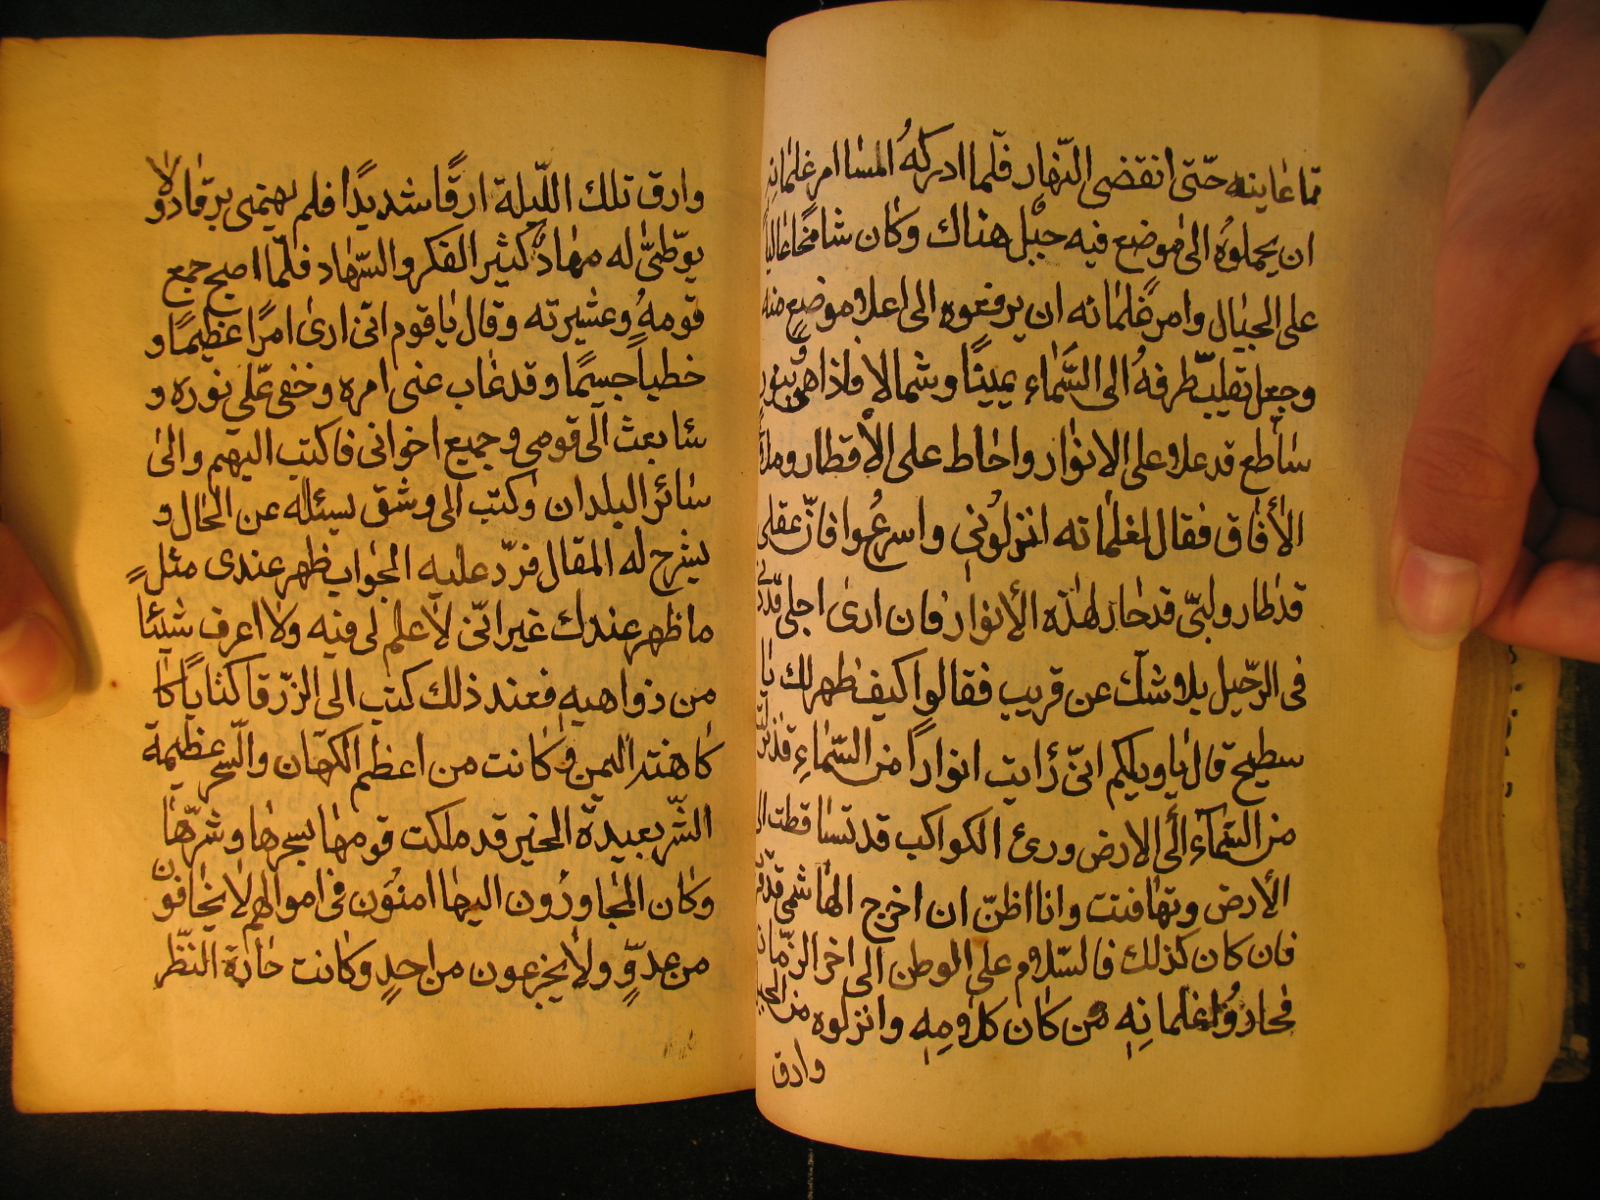 مما عاينه حتّى انقضى النّهار فلّما ادركهُ المسَا امر غلمانه
ان يحملوهُ الى موضع فيه جبل هناك وكان شامخًا عاليًا
على الجبال وامر غلمانه ان يرفعوه الى اعلا موضعٍ منه
وجعل تقليب طرفهُ الى السَّماء يمينًا وشمالا فاذا هو بنور
ساطع قد علا وعلى الانوار واحاط على الأقطار وملأ
الأفاق فقال لغلمانه انزلوُنى واسرعُوا فانّ عقلى
قد طار ولبّى قد حار لهذه الأنوار فان ارى اجلى قد
فى الرّحيل بلا شك عن قريب فقالوا كيف ظهر لك يا
سطيح قال يا ويلكم انّى رايت انواراً من السّماءِ قد
من السّماء الى الارض ورئ الكواكب قد تساقطت الى
الأرض وتهافتت وانا اظنّ ان اخرج الهاشمى قد
فان كان كذلك فالسّلام على الوطن الى اخر الزّمان
فحارُوا غلمانِهِ من كان كلامِهِ وانزلوه من الجبل
وارق
وارق تلك اللّيلة ارقًا شديدًا فلم يهتمى برقاد ولا
يوطّئ له مهاد كثير الفكر والسّهاد فلّما اصبح جمع
قومهُ وعشيرته وقال يا قوم انّى ارى امرًا عظيمًا و
خطباً جسيمًا وقد غاب عنى امره وخفى علّى نوره و
سابعث الى قومى وجميع اخوانى فاكتب اليهم والى
سائر البلدان وكتب الى وشق يسئله عن الحال و
يشرح له المقال فردّ عليه الجواب ظهر عندى مثل
ما ظهر عندك غير انّى لا علم لى فيه ولا اعرف شيئًا
من دواهيهِ فعند ذلك كتب الى الزّرقا كتابًا كا
كاهنة اليمن وكانت من اعظم الكهّان والسّحر عظيمة
الشّر بعيدة الخير قد ملكت قومها بسحرها وشرّها
وكان المجاورُون اليها امنوُن فى اموالهم لا يخافون
من عدوٍّ ولا يجزعون من احدٍ وكانت حادة النّظر